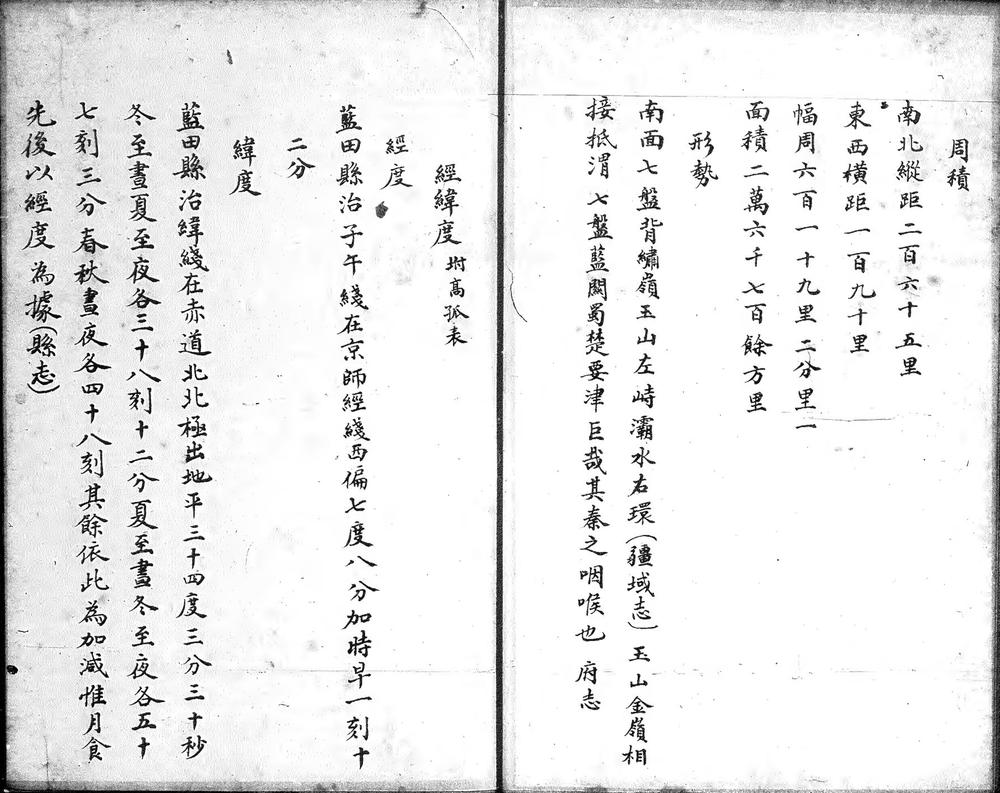 周積
南北縱距二百六十五里
東西橫距一百九十里
幅周六百一十九里二分里一
面積二萬六千七百餘方里
形勢
南面七盤背繡嶺玉山左峙灞水右環(疆域志)玉山金嶺相
接抵渭七盤藍關蜀楚要津巨哉其秦之咽喉也 府志
經緯度 坿高孤表
經度
藍田縣治子午綫在京師經綫西偏七度八分加時早一刻十
二分
緯度
藍田縣治緯綫在赤道北北極出地平三十四度三分三十秒
冬至晝夏至夜各三十八刻十二分夏至晝冬至夜各五十
七刻三分春秋晝夜各四十八刻其餘依此為加減惟月食
先後以經度為據(縣志)